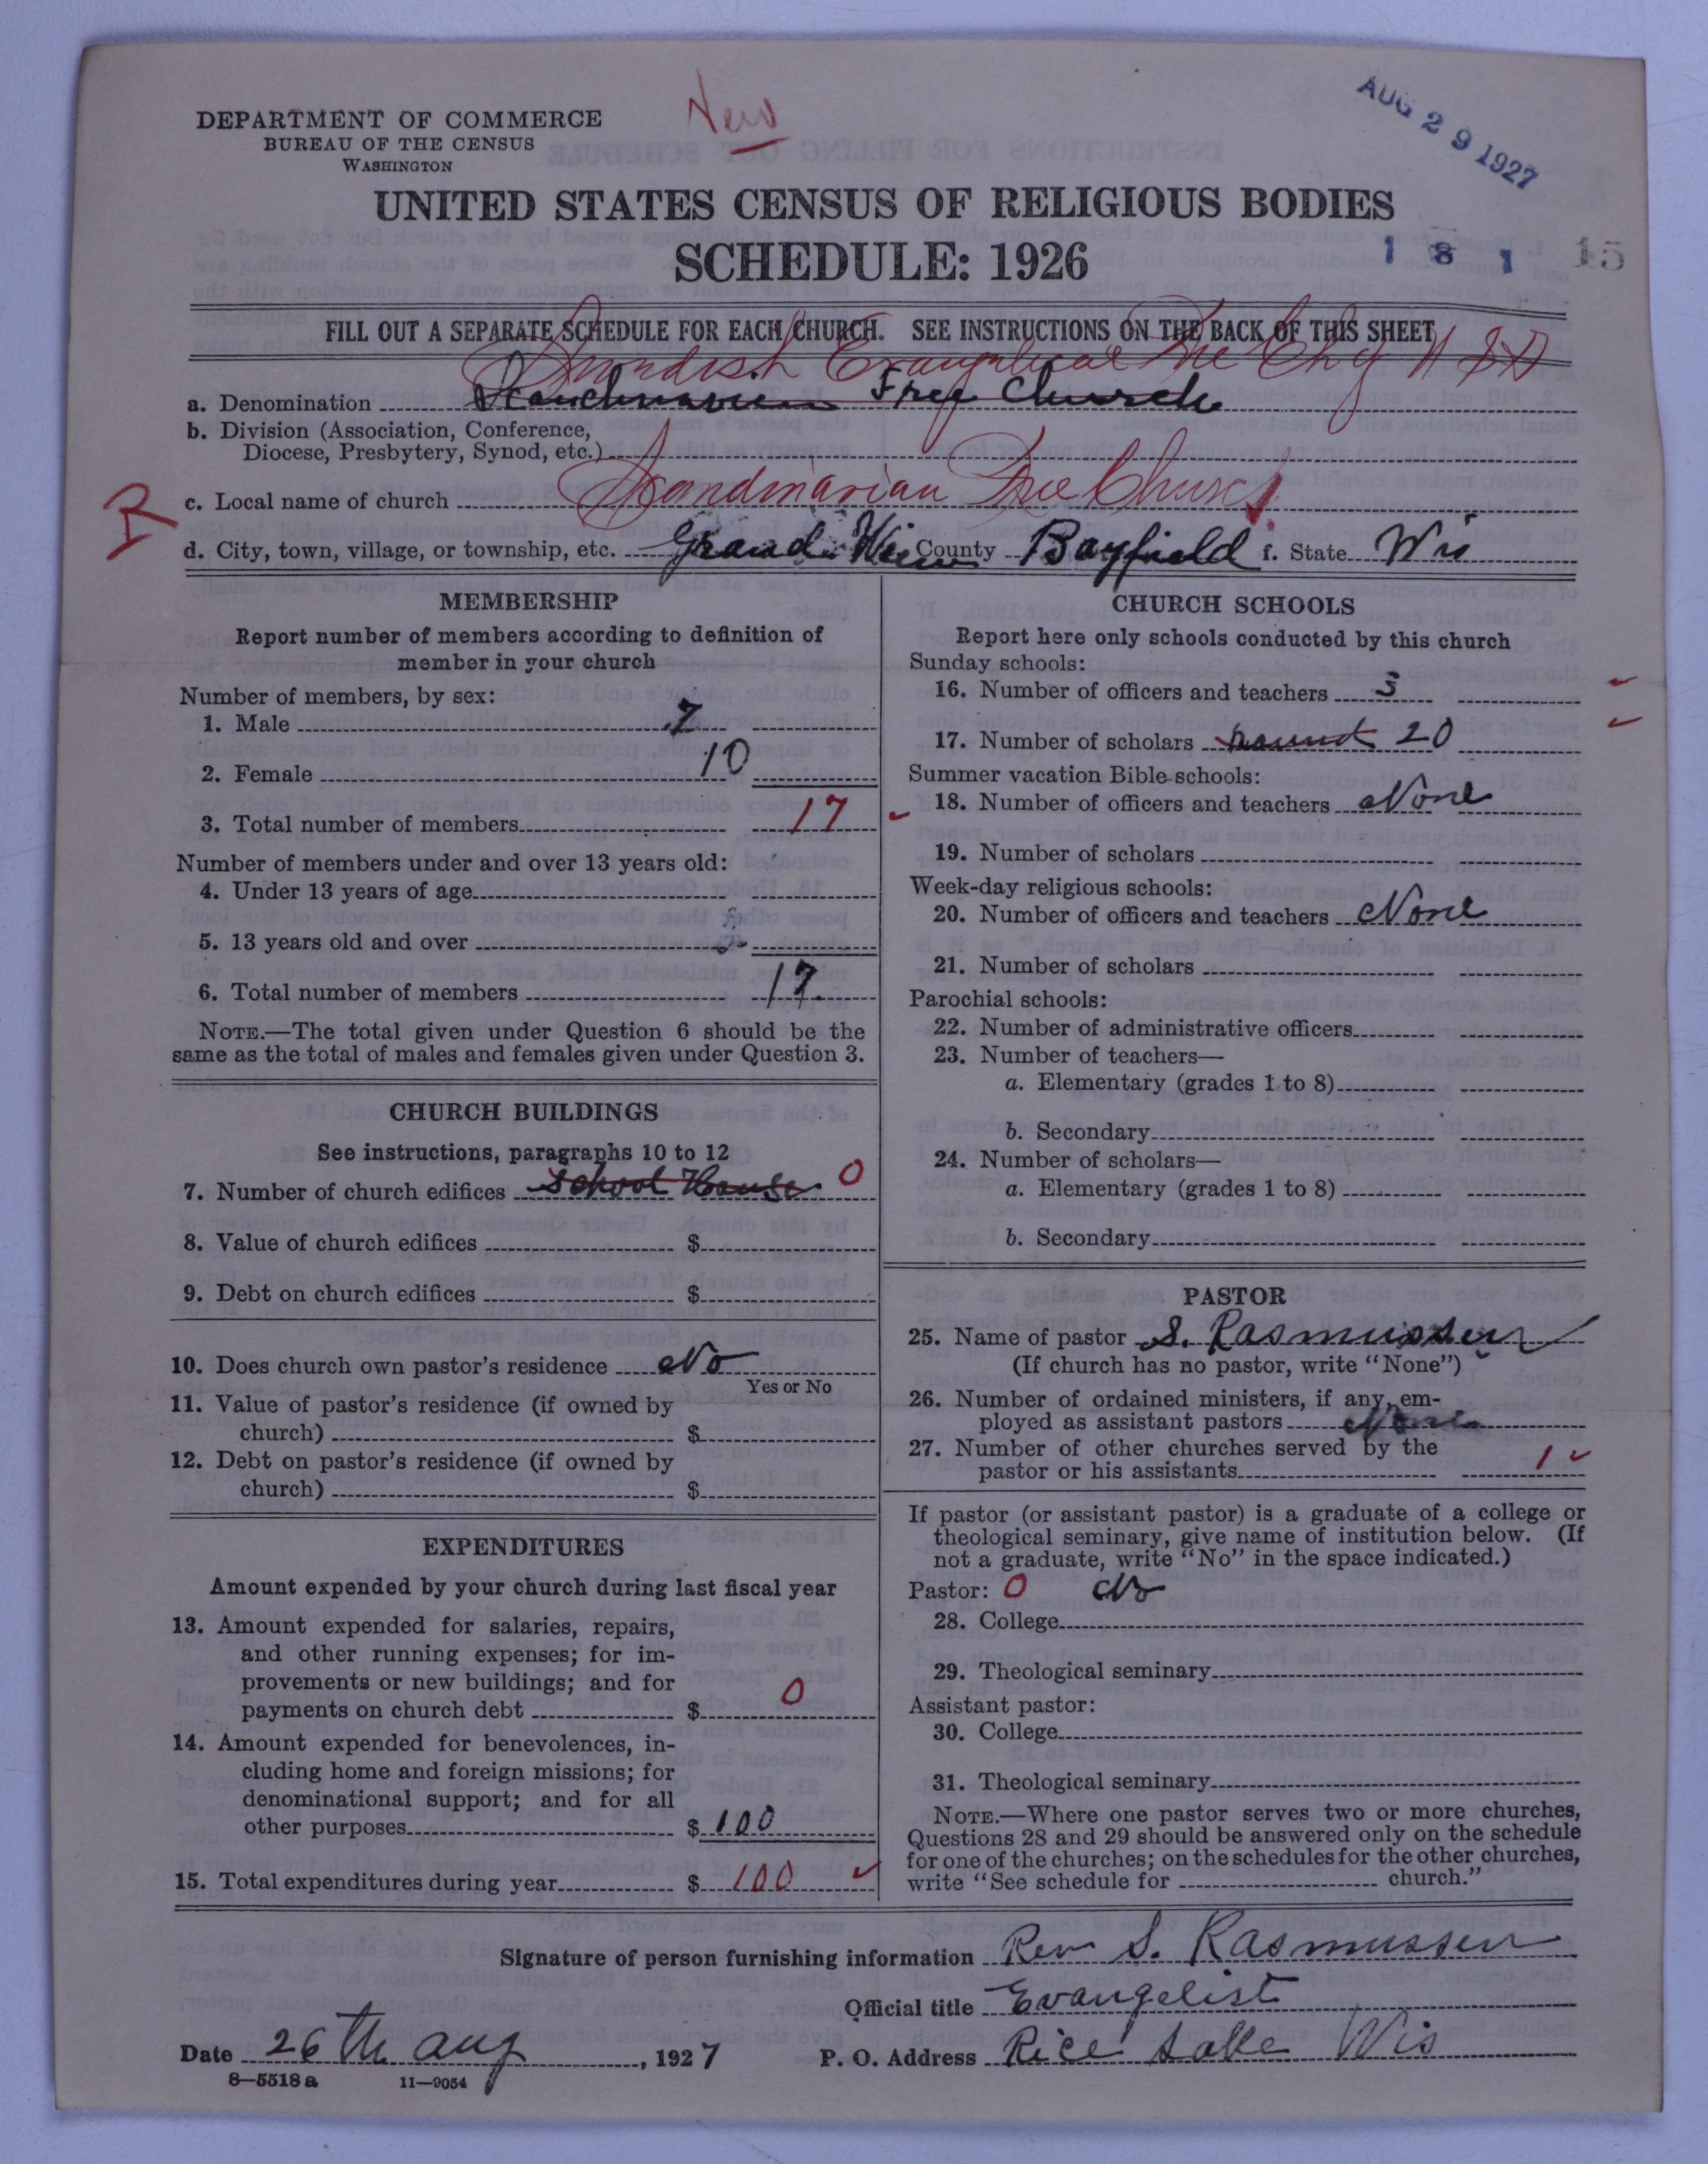 DEPARTMENT OF COMMERCE
BUREAU OF THE CENSUS
WASHINGTON
New
AUG 29 1927
UNITED STATES CENSUS OF RELIGIOUS BODIES
SCHEDULE: 1926
1 8 1 15
FILL OUT A SEPARATE SCHEDULE FOR EACH CHURCH. SEE INSTRUCTIONS ON THE BACK OF THIS SHEET
Swedish Evangelical Free Ch of N
a. Denomination Scandinavien Free Church
b. Division (Association, Conference,
Diocese, Presbytery, Synod, etc.)
R
c. Local name of church Scandinavian Free Church
d. City, town, village, or township, etc. Grand View County Bayfield f. State Wis
MEMBERSHIP
Report number of members according to definition of
member in your church
Number of members, by sex:
1. Male 7
2. Female 10
3. Total number of members 17
Number of members under and over 13 years old:
4. Under 13 years of age
5. 13 years old and over
6. Total number of members 17
NOTE.—The total given under Question 6 should be the
same as the total of males and females given under Question 3.
CHURCH BUILDINGS
See instructions, paragraphs 10 to 12
7. Number of church edifices School House 0
8. Value of church edifices $
9. Debt on church edifices $
10. Does church own pastor's residence No
Yes or No
11. Value of pastor's residence (if owned by
church) $
12. Debt on pastor's residence (if owned by
church) $
EXPENDITURES
Amount expended by your church during last fiscal year
13. Amount expended for salaries, repairs,
and other running expenses; for im-
provements or new buildings; and for
payments on church debt $ 0
14. Amount expended for benevolences, in-
cluding home and foreign missions; for
denominational support; and for all
other purposes $ 100
15. Total expenditures during year $ 100
CHURCH SCHOOLS
Report here only schools conducted by this church
Sunday schools:
16. Number of officers and teachers 3
17. Number of scholars 20
Summer vacation Bible schools:
18. Number of officers and teachers None
19. Number of scholars
Week-day religious schools:
20. Number of officers and teachers None
21. Number of scholars
Parochial schools:
22. Number of administrative officers
23. Number of teachers—
a. Elementary (grades 1 to 8)
b. Secondary
24. Number of scholars—
a. Elementary (grades 1 to 8)
b. Secondary
PASTOR
25. Name of pastor S. Rasmussen
(If church has no pastor, write "None")
26. Number of ordained ministers, if any, em-
ployed as assistant pastors None
27. Number of other churches served by the
pastor or his assistants 1
If pastor (or assistant pastor) is a graduate of a college or
theological seminary, give name of institution below. (If
not a graduate, write "No" in the space indicated.)
Pastor: 0 No
28. College
29. Theological seminary
Assistant pastor:
30. College
31. Theological seminary
NOTE.—Where one pastor serves two or more churches,
Questions 28 and 29 should be answered only on the schedule
for one of the churches; on the schedules for the other churches,
write "See schedule for church."
Signature of person furnishing information Rev S. Rasmussen
Official title Evangelist
Date 26th aug, 1927 P. O. Address Rice Lake Wis
8—5518a 11—9054